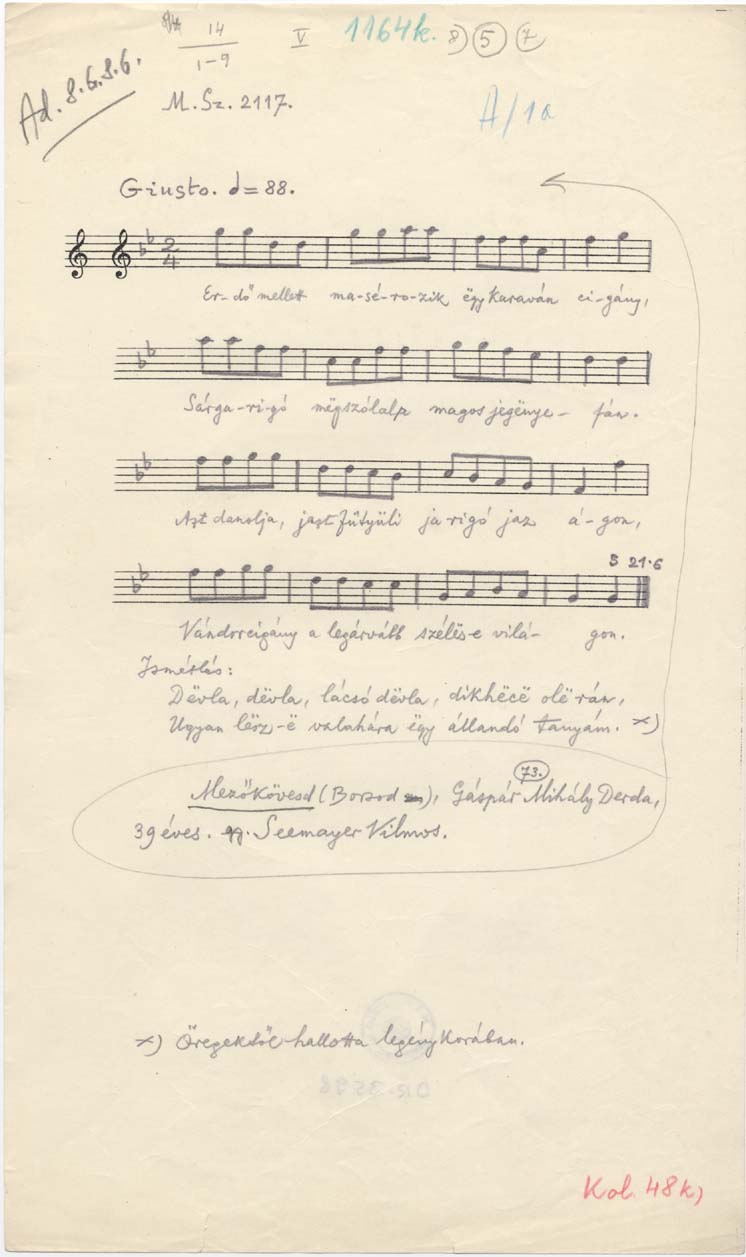 14
1-9
V
1164k.
8) 5 7
Ad. 8.6.8.6.
M. Sz. 2117.
A/1a
Giusto. = 88.
2
4
Er-dő mellett ma-sé-ro-zik ëgy karaván ci-gány,
Sárga-ri-gó mëgszólalp magos jegënye- fán.
Azt danolja, jazt fütyüli ja rigó jaz á-gon,
S 21.6
Vándorcigány a legárvább szélës-e vilá- gon.
Ismétlés:
Dëvla, dëvla, lácsó dëvla, dikhëcë olë rán,
Ugyan lësz-ë valahára ëgy állandó tanyám. x)
73.
Mezőkövesd (Borsod), Gáspár Mihály Derda,
39 éves. Seemayer Vilmos.
x) Öregektöl hallotta legény korában.
Kol. 48k)